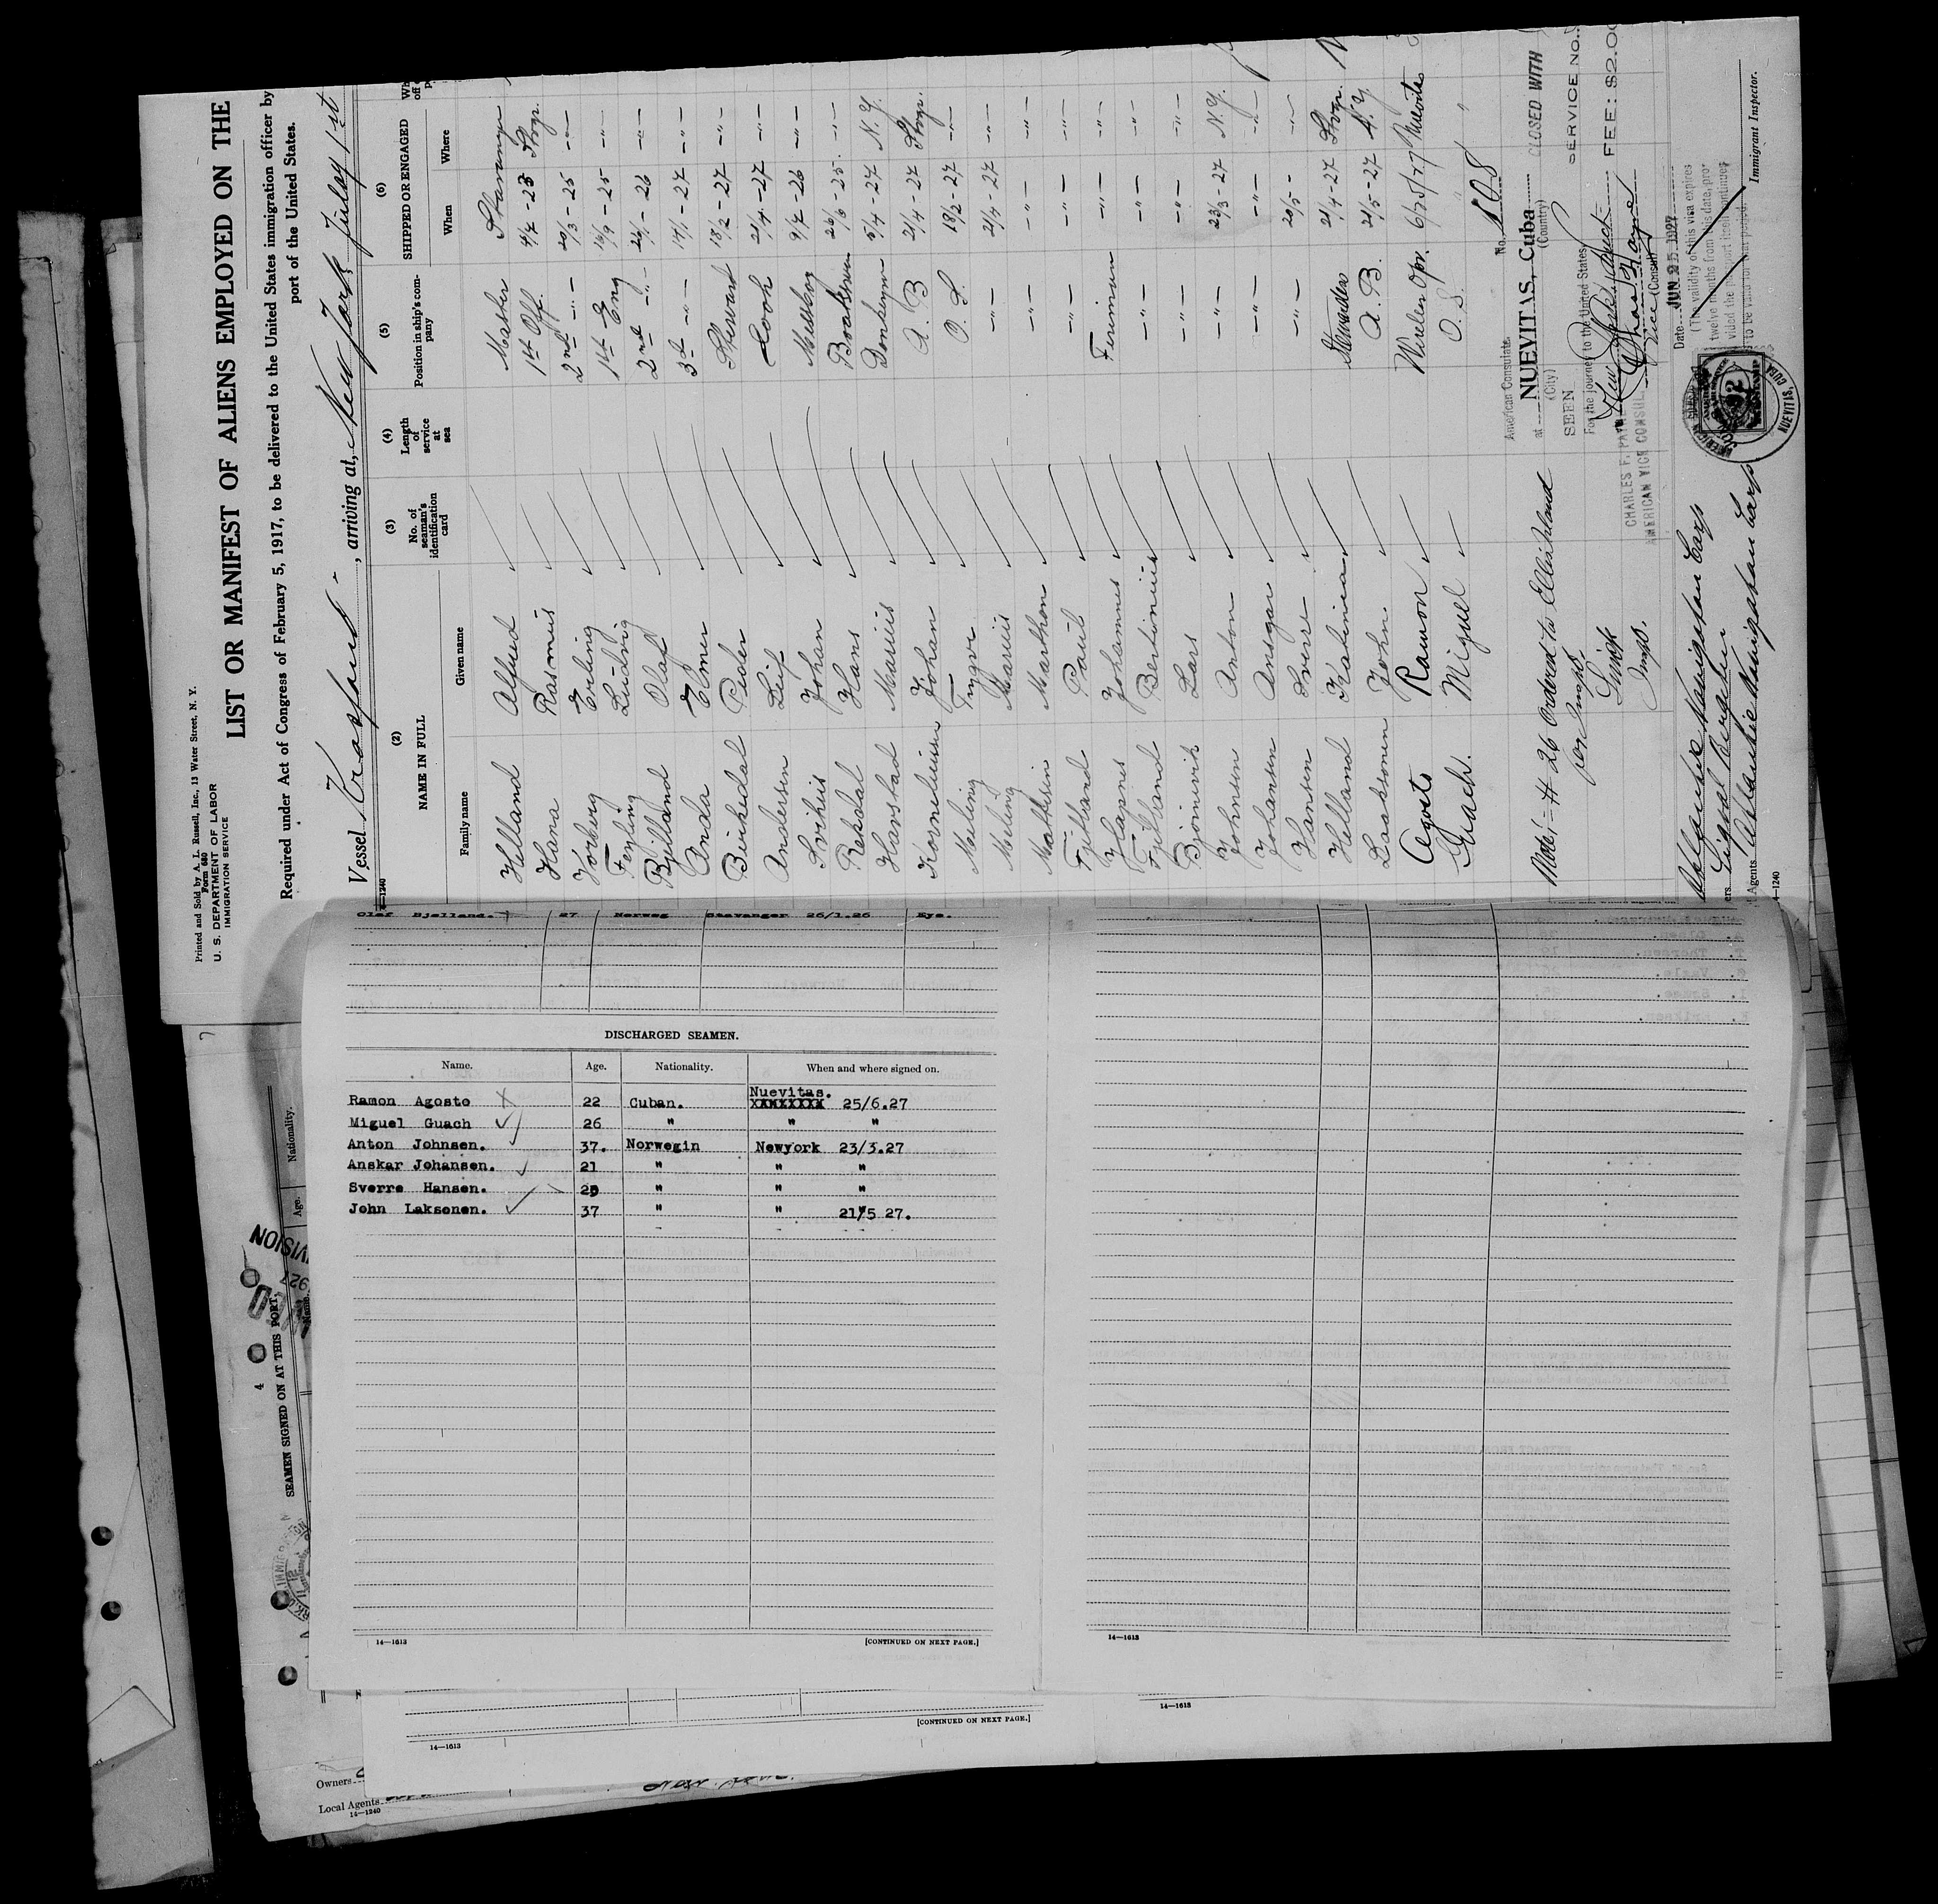 Printed and Sold by A. L. Russell, Inc., 13 Water Street, N. Y.
Form 680
U. S. DEPARTMENT OF LABOR
IMMIGRATION SERVICE
LIST OR MANIFEST OF ALIENS EMPLOYED ON THE
Required under Act of Congress of February 5, 1917, to be delivered to the United States immigration officer by
port of the United States.
Vessel Krosfond, arriving at, New York July 1st
(2) (3) (4) (5) (6)
NAME IN FULL
No. of seaman's identification card
Length of service at sea
Position in ship's company
SHIPPED OR ENGAGED
Family name Given name When Where
Helland Alfred Master Stavanger
Hana Rasmus 1st Off. 4/7-23 Stvgr.
Vorberg Erling 2nd -"- 20/3-25 -"-
Ferling Ludvig 1st Eng 16/9-25 -"-
Bjelland Olaf 2nd -"- 26/1-26 -"-
Anda Elmer 3d -"- 14/1-27 -"-
Birkedal Peder Steward 18/2-27 -"-
Andersen Leif Cook 21/4-27 -"-
Svihus Johan Messboy 9/7-26 -"-
Rekdal Hans Boatswain 26/3-25 -"-
Havstad Marius Donkeym 5/4-27 N.Y.
Korneliussen Johan A. B 21/4-27 Stvgr.
Meling Tingvr O. S. 18/2-27 -"-
Meling Marius -"- 21/4-27 -"-
Mathisin Marthon -"- -"- -"-
Fjelland Paul -"- -"- -"-
Hapnes Johannes Fireman -"- -"-
Fjelland Bertinius -"- -"- -"-
Bjonevik Lars -"- -"- -"-
Johnsen Anton -"- 23/3-27 N.Y.
Johansen Ansgar -"- -"-
Hansen Sverre -"- 20/5-- -"-
Helland Katinka 21/4-27 Stvgr.
Laaksonen John A. B. 21/5-27 N.Y
Agosto Ramon Wireless Opr. Nuevitas
Guach. Miguel O. S. " "
Note:- # 26 Ordered to Ellis Island
for Insp.
Insp.
No. 108
American Consulate.
at NUEVITAS, Cuba
(City) (Country)
SEEN
For the journey to the United States
New York
Vice (Consul)
CHARLES F. PAYNE
AMERICAN VICE CONSUL
CLOSED WITH
SERVICE NO.
FEE: $2.00
Date JUN 25 1927
(The validity of this visa expires
twelve months from this date, pro-
vided the passport itself continues
to be valid for that period.
NUEVITAS, CUBA
Immigrant Inspector.
Agents Atlantic Navigation Corp
14—1240
Olaf Bjelland. 27 Norweg Stavanger 26/1.26 Eye.
DISCHARGED SEAMEN.
Name. Age. Nationality. When and where signed on.
Ramon Agosto 22 Cuban. Nuevitas. 25/6.27
Miguel Guach 26 " " "
Anton Johnsen. 37. Norwegin Newyork 23/3.27
Anskar Johansen. 21 " " "
Sverre Hansen. 25 " " "
John Laksonen. 37 " " 21/5 27.
14—1613 [CONTINUED ON NEXT PAGE.]
14—1613
[CONTINUED ON NEXT PAGE.]
14—1613
14—1613
Nationality.
Age.
Name.
4
SEAMEN SIGNED ON AT THIS PORT.
Owners
Local Agents
14—1240